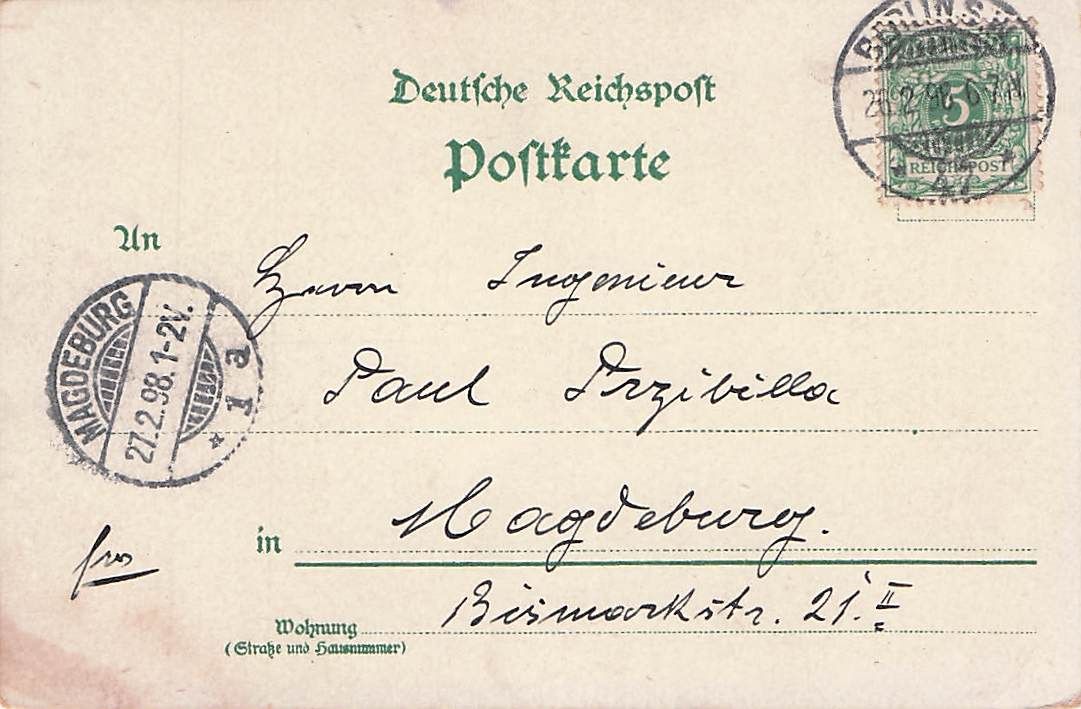 Deutsche Reichspost
Postkarte
BERLIN S.W.
26.2.98. 6-7N
* 47 *
5
REICHSPOST
An
Herrn Ingenieur
MAGDEBURG
27.2.98. 1-2V.
* 1 a
Paul Przibilla
in Magdeburg.
frei
Bismarkstr. 21. II
Wohnung
(Straße und Hausnummer)